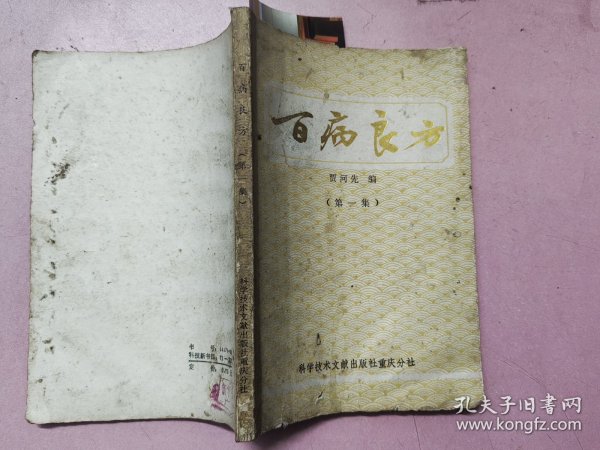 百病良方
贾河先 编
(第一集)
科学技术文献出版社重庆分社
百病良方(第一集)
科学技术文献出版社重庆分社
书 号
科技新书目
定 价
孔夫子旧书网
www.kongfz.com